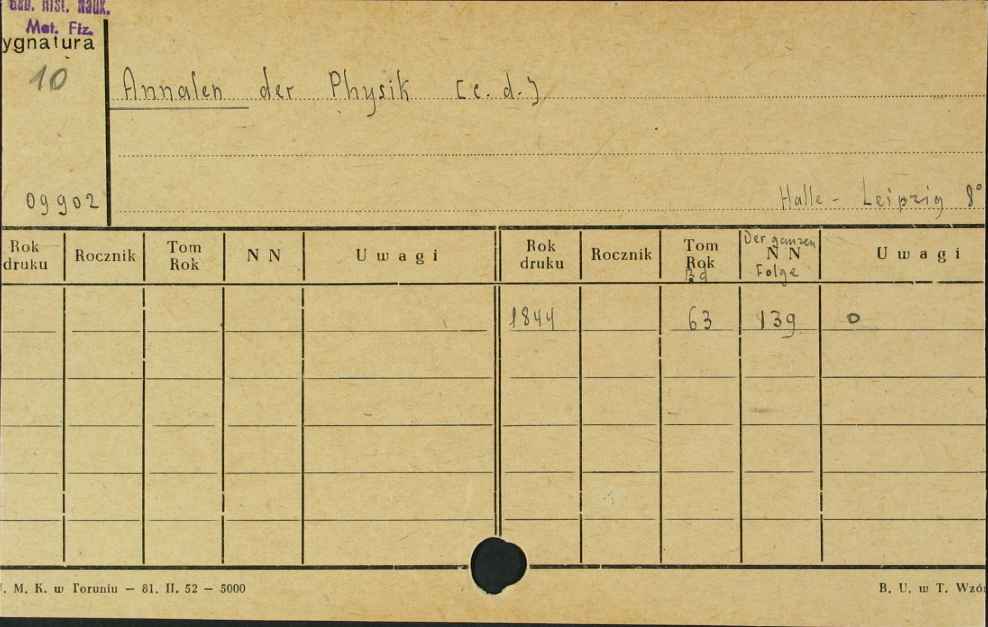 Gab. Hist. Nauk.
Mat. Fiz.
ygnatura
10
Annalen der Physik [c. d.]
09902
Halle - Leipzig 8°
Rok druku Rocznik Tom Rok N N Uwagi Rok druku Rocznik Tom Rok Bd Der ganzen N N Folge Uwagi
1844 63 139 o
. M. K. w Toruniu — 81. II. 52 — 5000
B. U. w T. Wzó